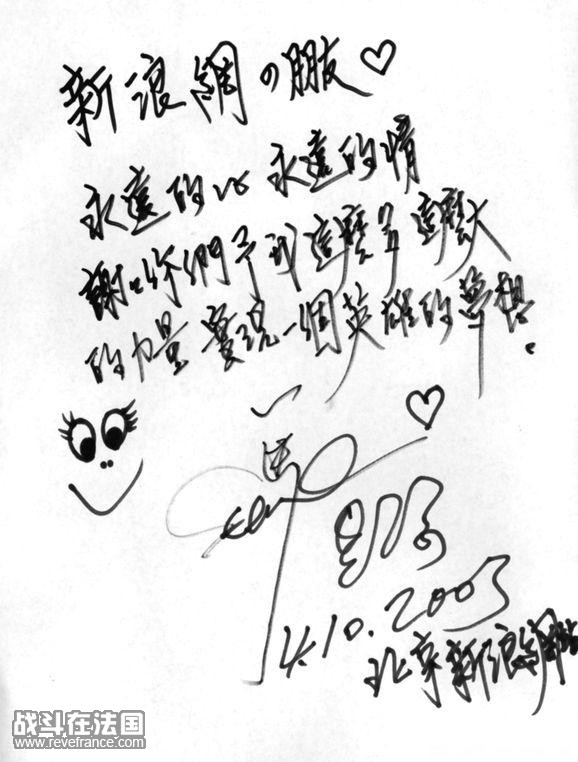 新浪網の朋友♡
永遠的心 永遠的情
謝々你們予我這麼多這麼大
的力量 實現一個英雄的夢想。
4.10.2003
北京新浪網站
战斗在法国
www.revefrance.com